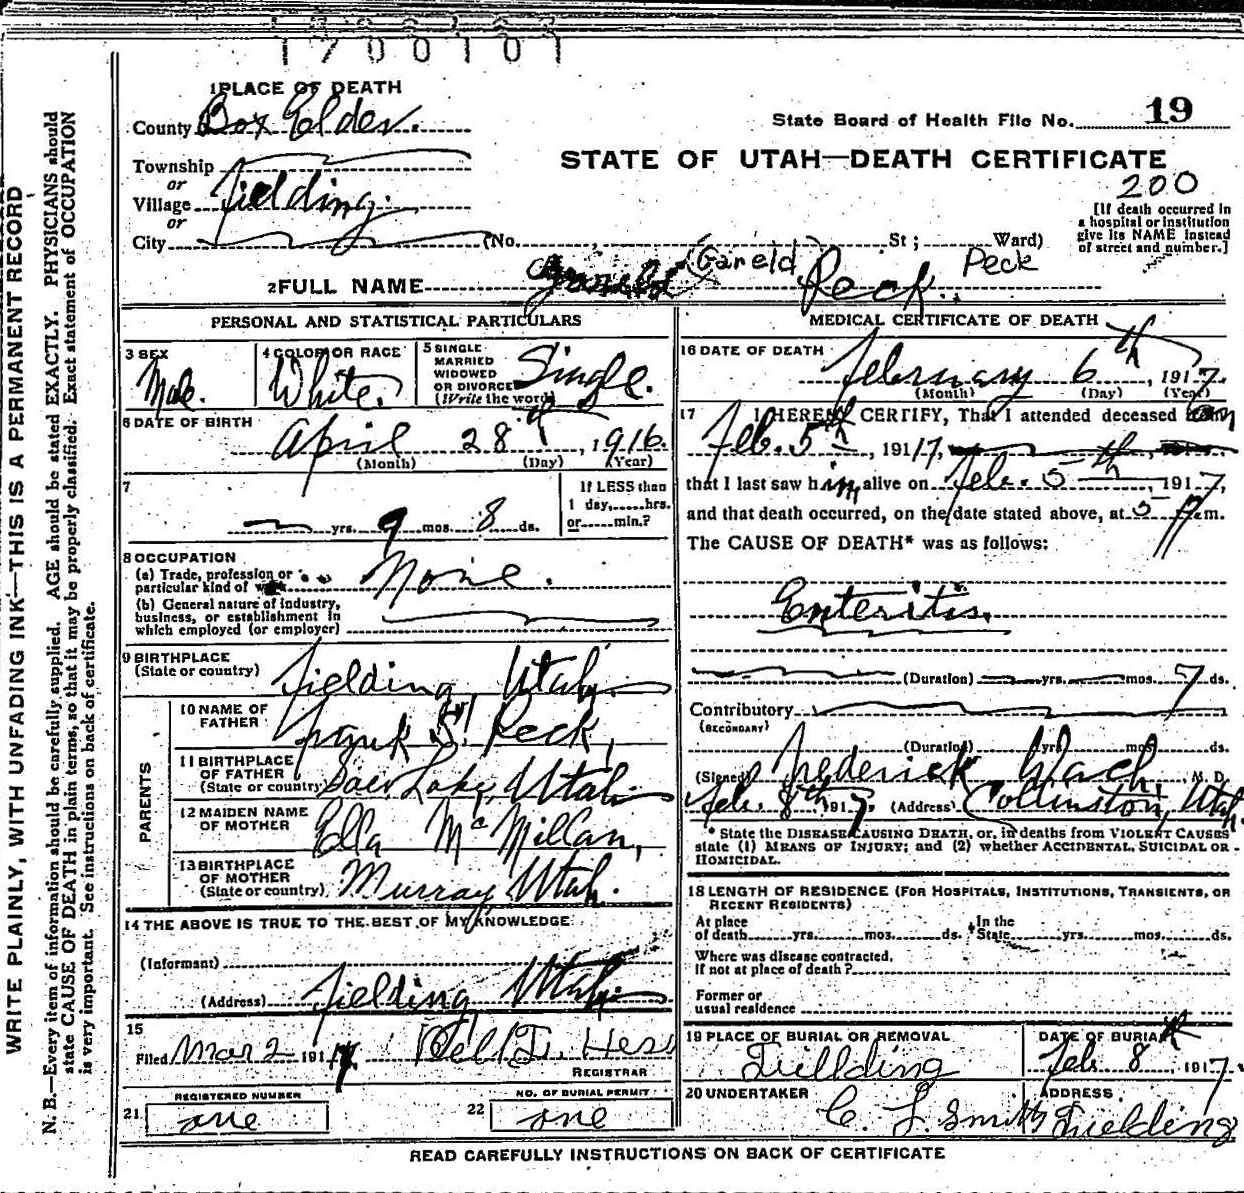 1700101
1 PLACE OF DEATH
County Box Elder.
State Board of Health File No. 19
Township
or
STATE OF UTAH—DEATH CERTIFICATE
200
Village Fielding.
or
[If death occurred in
a hospital or institution
give its NAME instead
of street and number.]
City (No. , St ; Ward)
2 FULL NAME (Gareld) Peck. Peck
PERSONAL AND STATISTICAL PARTICULARS
3 SEX
Male.
4 COLOR OR RACE
White.
5 SINGLE
MARRIED
WIDOWED
OR DIVORCED
(Write the word)
Single.
6 DATE OF BIRTH
April 28th, 1916.
(Month) (Day) (Year)
7
yrs. 9 mos. 8 ds.
If LESS than
1 day,......hrs.
or......min.?
8 OCCUPATION
(a) Trade, profession or
particular kind of work None.
(b) General nature of industry,
business, or establishment in
which employed (or employer)
9 BIRTHPLACE
(State or country) Fielding, Utah.
PARENTS
10 NAME OF
FATHER Frank S. Peck,
11 BIRTHPLACE
OF FATHER
(State or country) Lake, Utah.
12 MAIDEN NAME
OF MOTHER Ella McMillan,
13 BIRTHPLACE
OF MOTHER
(State or country) Murray, Utah.
14 THE ABOVE IS TRUE TO THE BEST OF MY KNOWLEDGE
(Informant)
(Address) Fielding, Utah.
15
Filed Mar 2 1917 Hess
REGISTRAR
REGISTERED NUMBER
21 one
NO. OF BURIAL PERMIT
22 one
MEDICAL CERTIFICATE OF DEATH
16 DATE OF DEATH
February 6th, 1917.
(Month) (Day) (Year)
17 I HEREBY CERTIFY, That I attended deceased
Feb. 5th, 1917,
that I last saw him alive on Feb. 5th, 1917,
and that death occurred, on the date stated above, at 5 P m.
The CAUSE OF DEATH* was as follows:
Enteritis.
(Duration) yrs. mos. 7 ds.
Contributory
(SECONDARY)
(Duration) yrs. mos. ds.
(Signed) Frederick M. D.
Feb. 8th, 1917. (Address) Collinston, Utah.
* State the DISEASE CAUSING DEATH, or, in deaths from VIOLENT CAUSES
state (1) MEANS OF INJURY; and (2) whether ACCIDENTAL, SUICIDAL OR
HOMICIDAL.
18 LENGTH OF RESIDENCE (FOR HOSPITALS, INSTITUTIONS, TRANSIENTS, OR
RECENT RESIDENTS)
At place In the
of death......yrs......mos......ds. State......yrs......mos......ds.
Where was disease contracted,
If not at place of death?
Former or
usual residence
19 PLACE OF BURIAL OR REMOVAL
Fiellding
DATE OF BURIAL
Feb. 8, 1917.
20 UNDERTAKER
C. L. Smith
ADDRESS
Fielding
READ CAREFULLY INSTRUCTIONS ON BACK OF CERTIFICATE
WRITE PLAINLY, WITH UNFADING INK—THIS IS A PERMANENT RECORD
N. B.—Every item of information should be carefully supplied. AGE should be stated EXACTLY. PHYSICIANS should
state CAUSE OF DEATH in plain terms, so that it may be properly classified. Exact statement of OCCUPATION
is very important. See instructions on back of certificate.